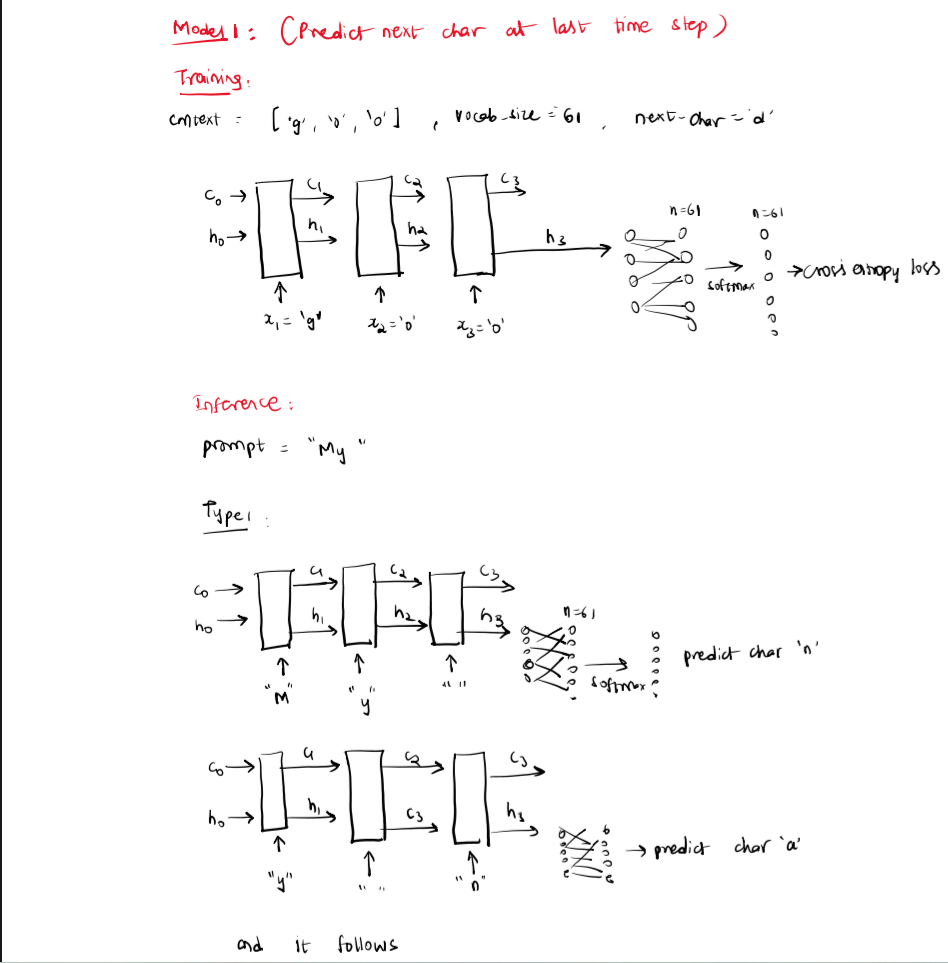 Model 1 : (Predict next char at last time step)
Training:
context = ['g', 'o', 'o'] , vocab-size = 61 , next-char = 'd'
c₀ → c₁ c₂ c₃
n=61 n=61
h₀ → h₁ h₂ h₃
softmax → cross entropy loss
x₁ = 'g' x₂ = 'o' x₃ = 'o'
Inference :
prompt = "My "
Type 1 :
c₀ → c₁ c₂ c₃
h₀ → h₁ h₂ h₃ n=61
softmax predict char 'n'
"M" "y" " "
c₀ → c₁ c₂ c₃
h₀ → h₁ c₃ h₃
→ predict char 'a'
"y" " " "n"
and it follows